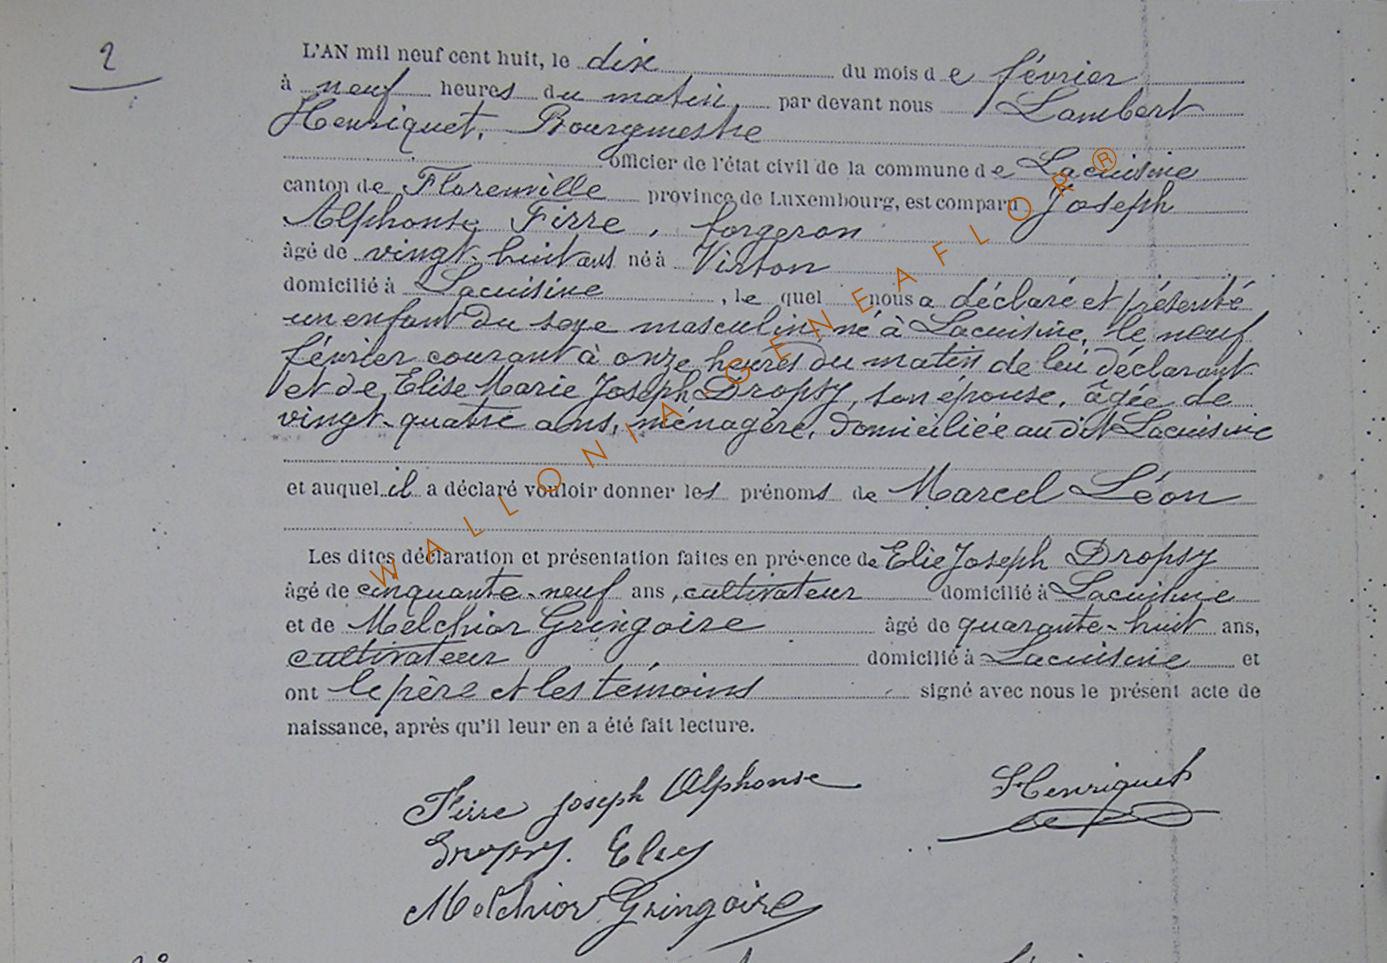 2
L'AN mil neuf cent huit, le dix du mois de février
à neuf heures du matin, par devant nous Lambert
Henriquet, Bourgmestre
officier de l'état civil de la commune de Lacuisine
canton de Florenville province de Luxembourg, est comparu Joseph
Alphonse Firre, forgeron
âgé de vingt-huit ans né à Virton
domicilié à Lacuisine, le quel nous a déclaré et présenté
un enfant du sexe masculin, né à Lacuisine, le neuf
février courant à onze heures du matin de lui déclarant
et de Elise Marie Joseph Dropsy, son épouse, âgée de
vingt-quatre ans, ménagère, domiciliée au dit Lacuisine
et auquel il a déclaré vouloir donner les prénoms de Marcel Léon
Les dites déclaration et présentation faites en présence de Elie Joseph Dropsy
âgé de cinquante-neuf ans, cultivateur domicilié à Lacuisine
et de Melchior Gringoire âgé de quarante-huit ans,
cultivateur domicilié à Lacuisine et
ont le père et les témoins signé avec nous le présent acte de
naissance, après qu'il leur en a été fait lecture.
Firre Joseph Alphonse
Henriquet
Dropsy. Eley
Melchior Gringoire
WALLONIA-GENEAFLOR®